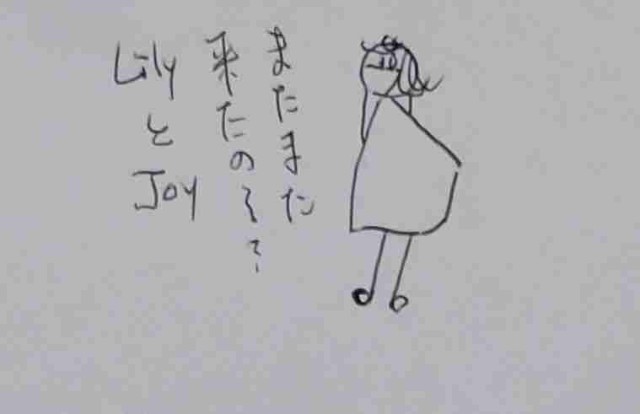 またまた
来たの〜?
LilyとJoy